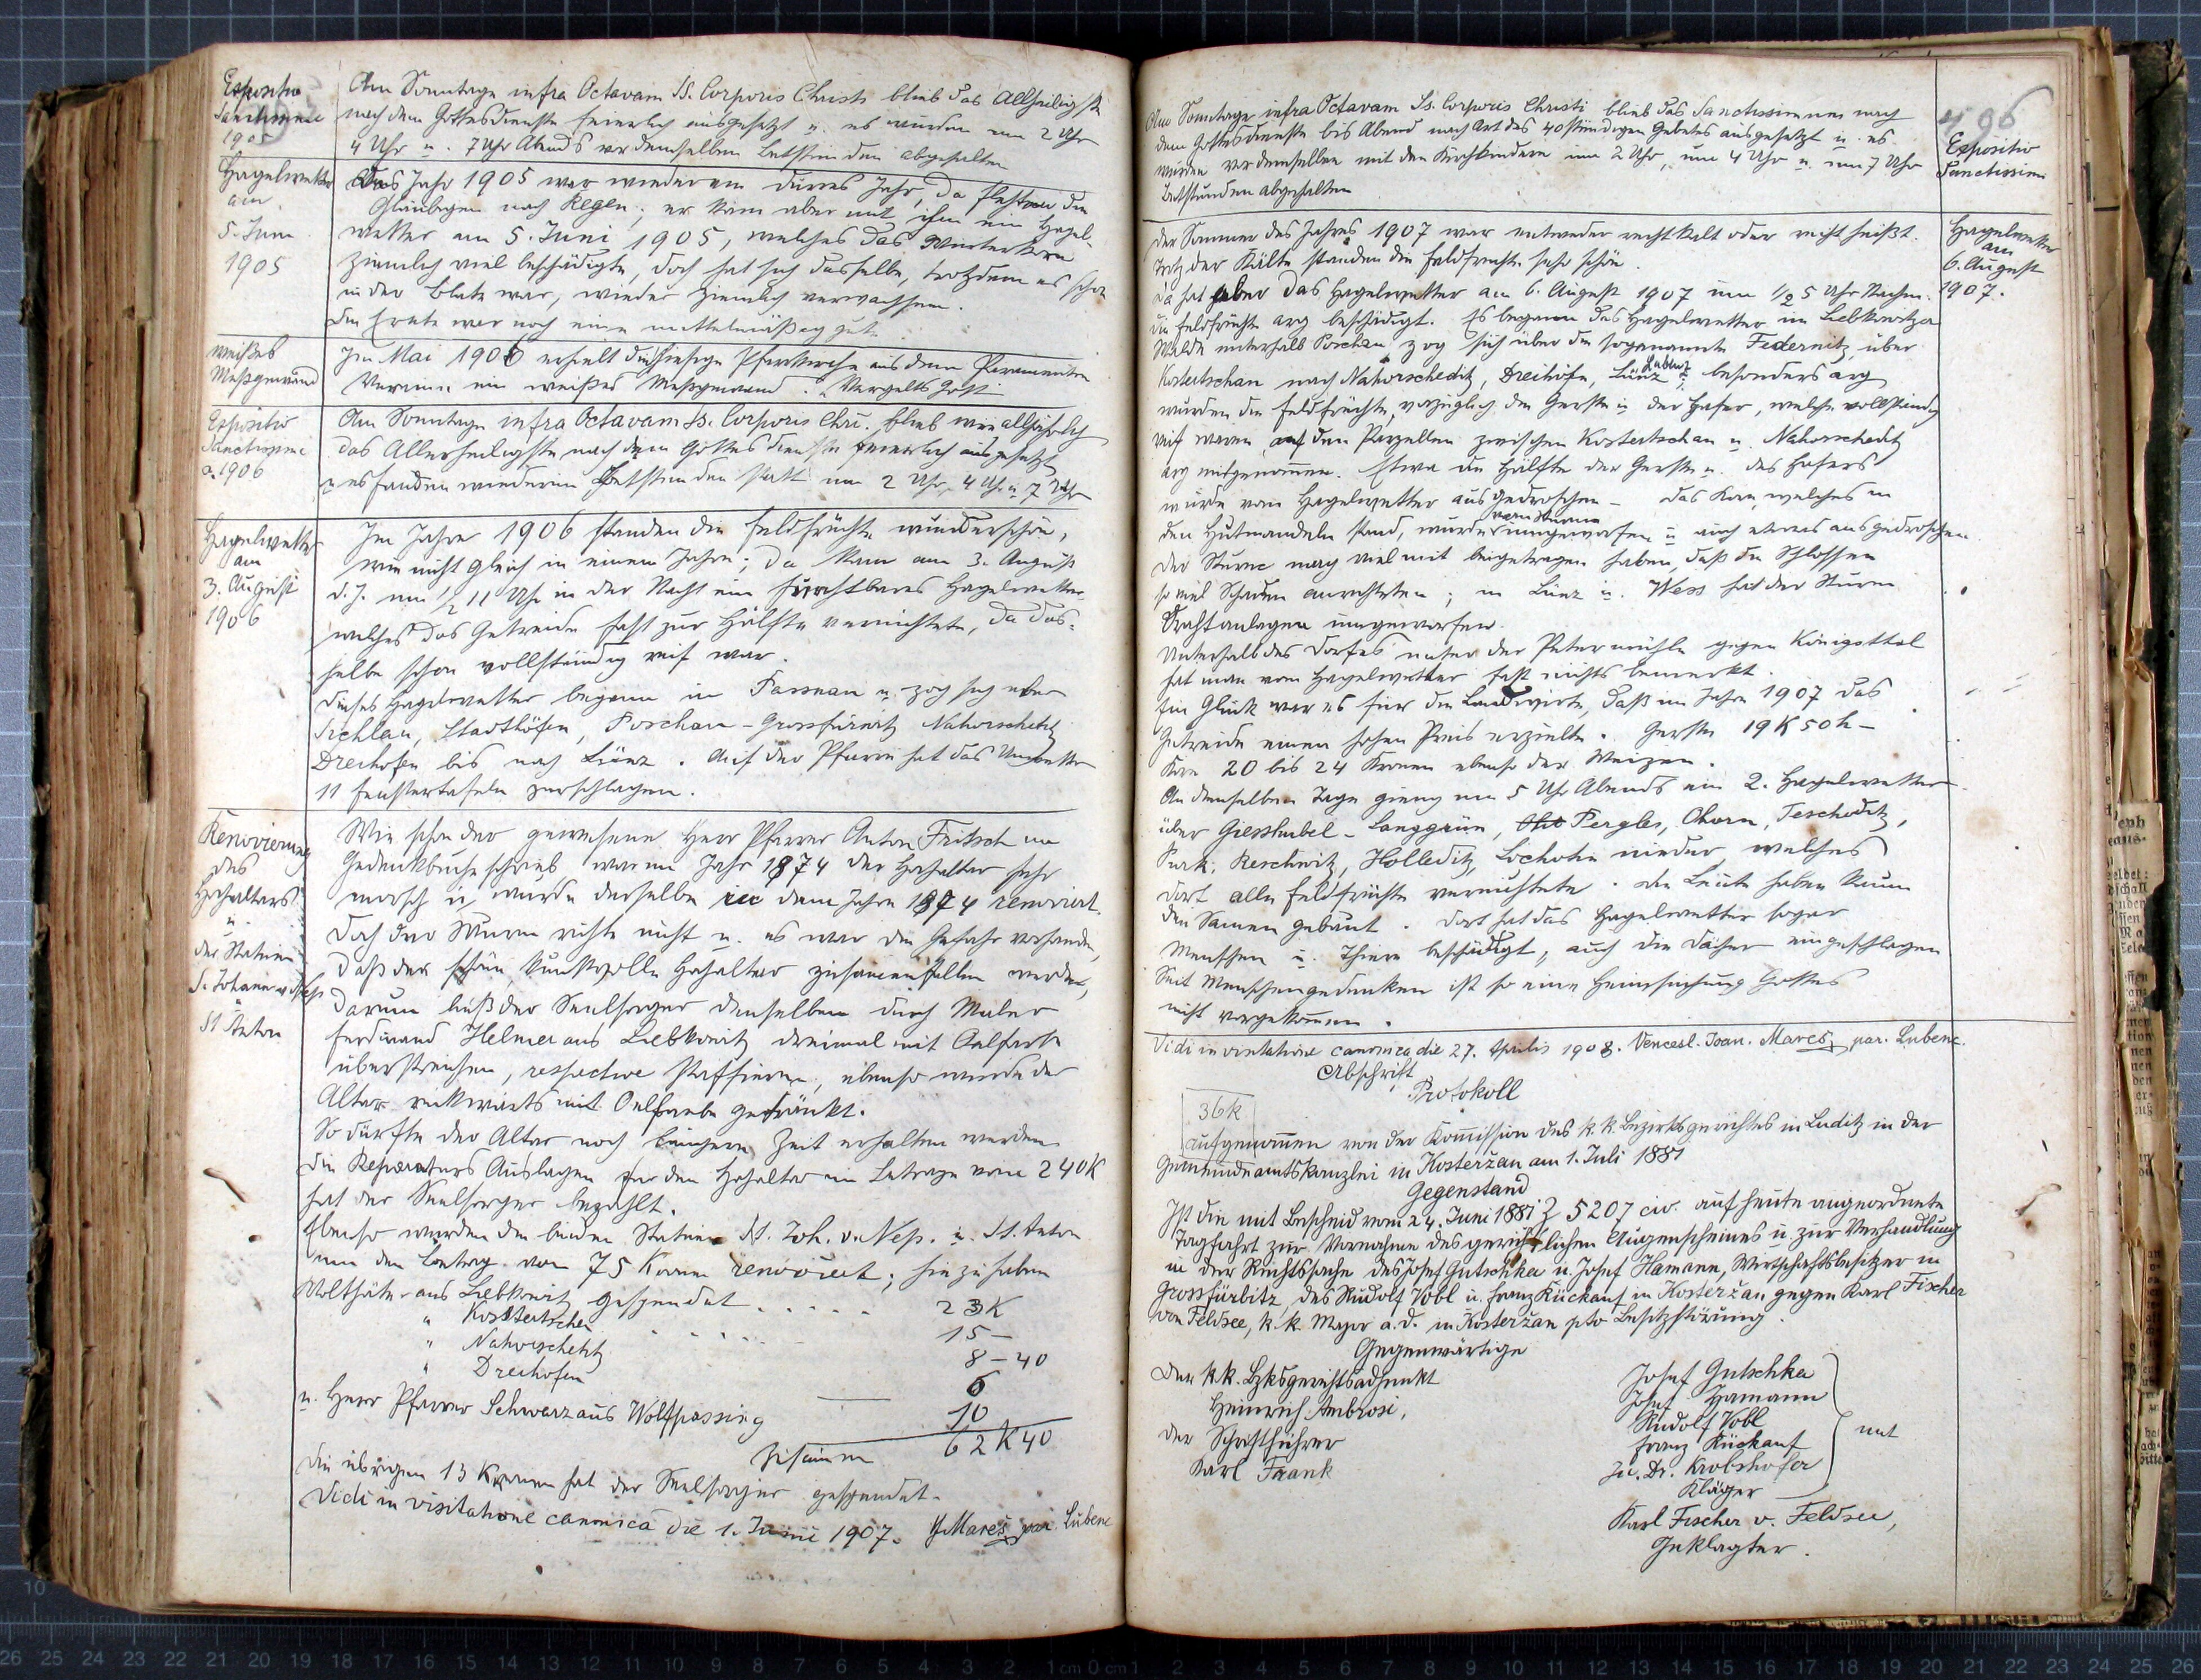 Expositio
Sanctissimi
1905
Am Sonntage infra Octavam SS. Corporis Christi blieb das Allheiligste
nach dem Gottesdienste feierlich ausgesetzt u. es wurden um 2 Uhr
4 Uhr u. 7 Uhr Abends vor demselben Betstunden abgehalten
Hagelwetter
am
5. Juni
1905
Das Jahr 1905 war wiederum dürres Jahr, da flehten die
Gläubigen nach Regen; er kam aber mit ihm ein Hagel-
wetter am 5. Juni 1905, welches das Winterkorn
ziemlich viel beschädigte, doch hat sich dasselbe, trotzdem es schon
in der Blüte war, wieder ziemlich verwachsen.
Die Ernte war noch eine mittelmäßig gute
weißes
Meßgewand
Im Mai 1906 erhielt die hiesige Pfarrkirche aus dem Paramenten
Vereine ein weißes Messgewand. Vergelts Gott
Expositio
Sanctissimi
a. 1906
Am Sonntage infra Octavam Ss. Corporis Chri. blieb wie alljährlich
das Allerheiligste nach dem Gottesdienste feierlich ausgesetzt
u es fanden wiederum Betstunden statt um 2 Uhr, 4 Uhr u. 7 Uhr
Hagelwetter
am
3. August
1906
Im Jahre 1906 standen die Feldfrüchte wunderschön,
wie nicht gleich in einem Jahre; da kam am 3. August
d. J. um 1/2 11 Uhr in der Nacht ein furchtbares Hagelwetter
welches das Getreide fast zur Hälfte vernichtete, da das-
selbe schon vollständig reif war.
Dieses Hagelwetter begann in Passnau u. zog sich über
Sichlau, Stadthöfen, Poschau - Grossfürwitz Nahorschetitz
Dreihöfen bis nach Lünz. Auf der Pfarre hat das Unwetter
11 Fenstertafeln zerschlagen.
Renovierung
des
Hochaltars
u.
der Statuen
S. Johann v. Nep
u
St Anton
Wie schon der gewesene Herr Pfarrer Anton Fritsch im
Gedenkbuche schrieb, war im Jahr 1874 der Hochaltar sehr
morsch u. wurde derselbe in dem Jahre 1874 renoviert.
Doch der Wurm ruhte nicht u. es war die Gefahr vorhanden,
daß der schöne kunstvolle Hochaltar zusammenfallen werde,
darum ließ der Seelsorger denselben durch Maler
Ferdinand Helmer aus Liebkowitz dreimal mit Oelfarbe
überstreichen, respective staffieren, ebenso wurde der
Altar rückwärts mit Oelfarbe getränkt.
So dürfte der Altar noch längere Zeit erhalten werden
Die Reparaturs Auslagen für den Hochaltar im Betrage von 240 K
hat der Seelsorger bezahlt.
Ebenso wurden die beiden Statuen St. Joh. v. Nep. u. St. Anton
um den Betrag von 75 Kronen renoviert; hiezu haben
Wolthäter aus Liebkowitz gespendet . . . . . 23 K
" Kostertschan . . . . . 15 —
" Nahorschetitz 8 — 40
" Dreihöfen 6
u. Herr Pfarrer Schwarz aus Wolfpassing — 10
Zusammen 62 K 40
Die übrigen 13 Kronen hat der Seelsorger gespendet.
Vidi in visitatione canonica die 1. Junii 1907. Mareš par. Lubenc
496
Am Sonntage infra Octavam Ss. Corporis Christi blieb das Sanctissimum nach
dem Gottesdienste bis Abend nach Art des 40 stündigen Gebetes ausgesetzt u. es
wurden vor demselben mit den Kirchkindern um 2 Uhr, um 4 Uhr u. um 7 Uhr
Betstunden abgehalten
Expositio
Sanctissimi
Hagelwetter
am
6. August
1907.
Der Sommer des Jahres 1907 war entweder recht kalt oder recht heißt.
Trotz der Kälte standen die Feldfrüchte sehr schön.
Da hat aber das Hagelwetter am 6. August 1907 um 1/2 5 Uhr Nachm.
die Feldfrüchte arg beschädigt. Es begann das Hagelwetter im Liebkowitzer
Walde unterhalb Poschau zog sich über die sogenannte Federnitz, über
Kostertschan nach Nahorschetitz, Dreihöfe, Lünz u. Lubenz; besonders arg
wurden die Feldfrüchte, vorzüglich die Gerste u. der Hafer, welche vollständig
reif waren, auf den Parzellen zwischen Kostertschan u. Nahorschetitz
arg mitgenommen. Etwa die Hälfte der Gerste u. des Hafers
wurde vom Hagelwetter ausgedroschen — Das Korn, welches in
den Hutmandeln stand, wurde vom Sturme umgeworfen u auch etwas ausgedroschen
Der Sturm mag viel mit beigetragen haben, daß die Schlossen
so viel Schaden anrichteten; in Lünz u. Wess hat der Sturm
Drahtanlagen umgeworfen.
Unterhalb des Dorfes unter der Petermühle gegen Königsthal
hat man vom Hagelwetter fast nichts bemerkt.
Ein Glück war es für die Landwirte, daß im Jahre 1907 das
Getreide einen hohen Preis erzielte. Gerste 19 K 50 h —
Korn 20 bis 24 Kronen ebenso der Weizen.
An demselben Tage gieng um 5 Uhr Abends ein 2. Hagelwetter
über Giesshübel - Langgrün, Pergles, Chorn, Teschetitz,
Purk, Reschwitz, Holletitz, Lochotin nieder, welches
dort alle Feldfrüchte vernichtete. Die Leute haben kaum
den Samen gebaut. Dort hat das Hagelwetter sogar
Menschen u. Thiere beschädigt, auch die Dächer eingeschlagen
Seit Menschengedenken ist so eine Heimsuchung Gottes
nicht vorgekommen.
Vidi in visitatione canonica die 27. Aprilis 1908. Vencesl. Joan. Mareš, par. Lubenc.
Abschrift
Protokoll
36 k
aufgenommen von der Kommission des k. k. Bezirksgerichtes in Luditz in der
Gemeindeamtskanzlei in Kosteržan am 1. Juli 1881
Gegenstand
Ist die mit Bescheid vom 24. Juni 1881 Z 5207 civ. auf heute angeordnete
Tagfahrt zur Vornahme des gerichtlichen Augenscheines u. zur Verhandlung
in der Rechtssache des Josef Gutschka u. Josef Hamann, Wirtschaftsbesitzer in
Grossfürbitz, des Rudolf Vobl u. Franz Kückauf in Kosteržan gegen Karl Fischer
von Feldsee, k. k. Major a. d. in Kosteržan pto Besitzstörung.
Gegenwärtige
Der k k. Bzksgerichtsadjunkt
Heinrich Ambrosi,
der Schriftführer
Karl Frank
Josef Gutschka
Josef Hamann
Rudolf Vobl
Franz Kückauf
mit
Ju. Dr. Krobshofer
Kläger
Karl Fischer v. Feldsee,
Geklagter.